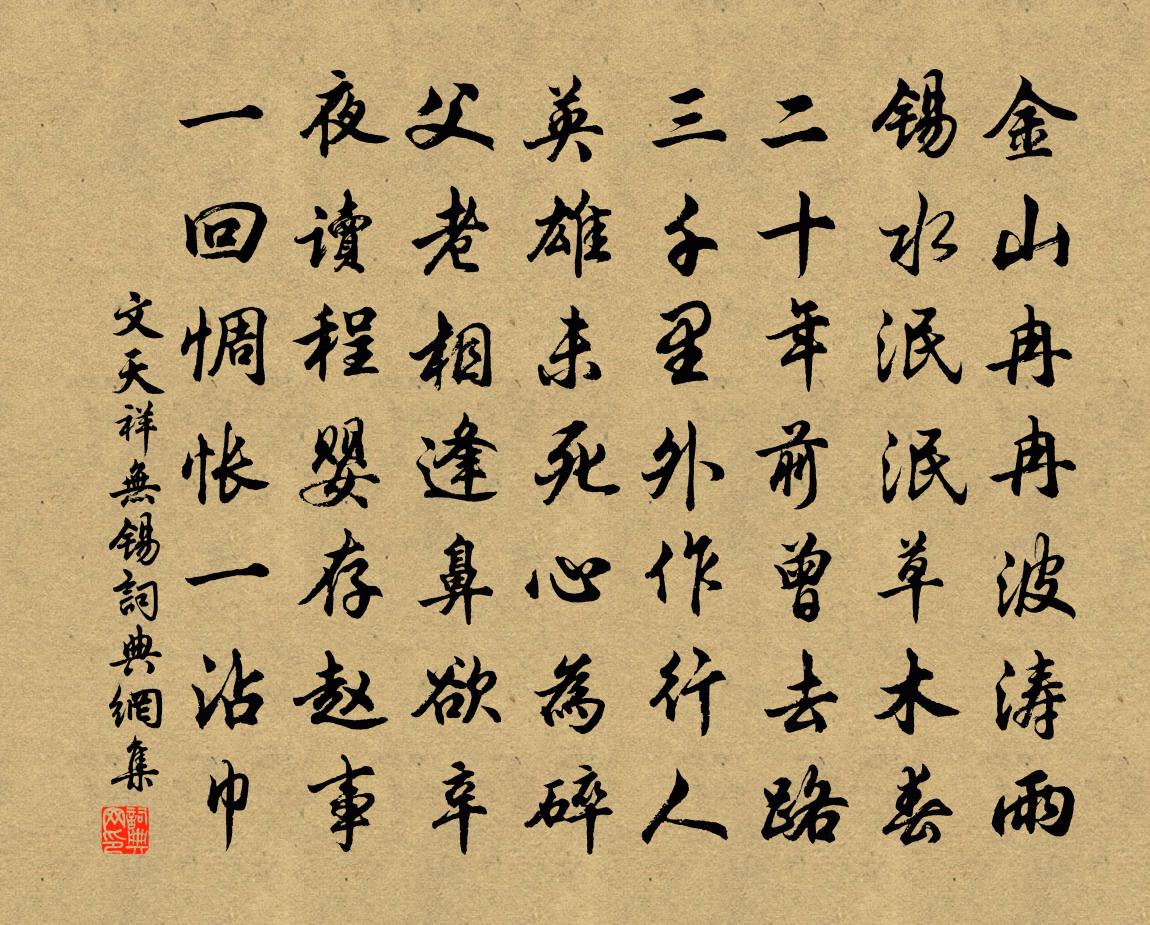 金山冉冉波涛雨
锡水泯泯草木春
二十年前曾去路
三千里外作行人
英雄未死心為碎
父老相逢鼻欲辛
夜讀程嬰存赵事
一回惆怅一沾巾
文天祥無锡詞典網集
詞典网印